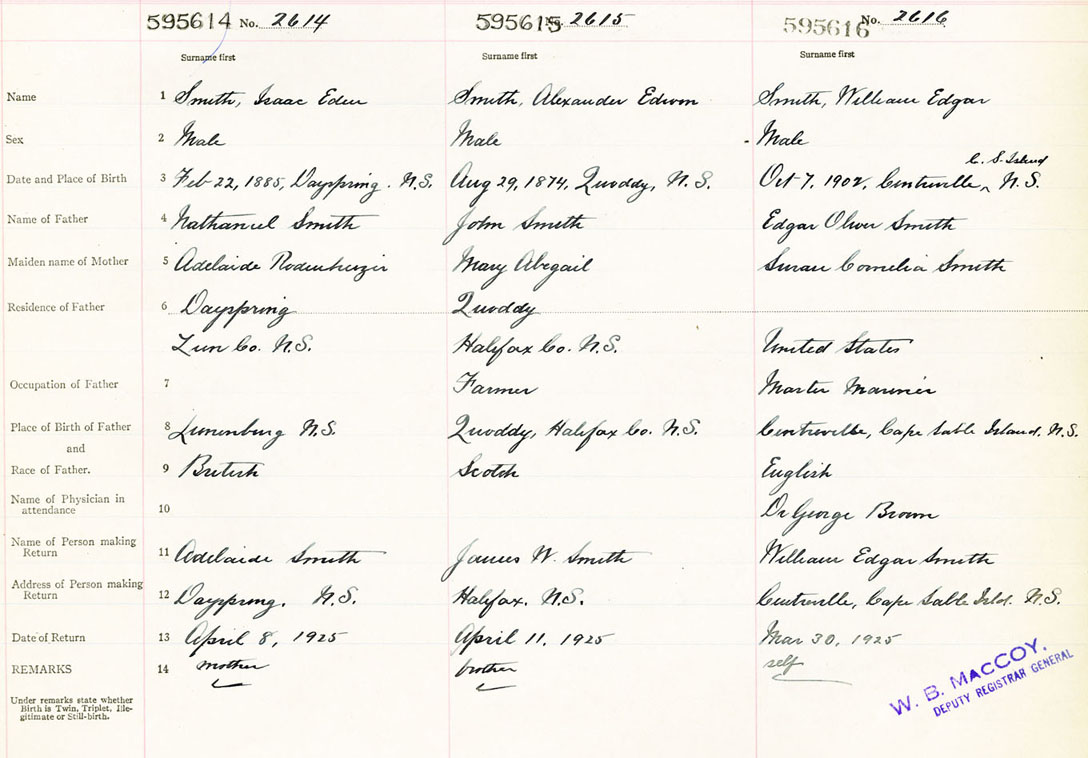 595614 No. 2614 595615 No. 2615 595616 No. 2616
Surname first Surname first Surname first
Name 1 Smith, Isaac Eden Smith, Alexander Edwin Smith, William Edgar
Sex 2 Male Male - Male
C. S. Island
Date and Place of Birth 3 Feb 22, 1885, Dayspring. N.S. Aug 29, 1874, Quoddy, N.S. Oct 7, 1902, Centreville, ^ N.S.
Name of Father 4 Nathaniel Smith John Smith Edgar Oliver Smith
Maiden name of Mother 5 Adelaide Mary Abegail Susan Cornelia Smith
Residence of Father 6 Dayspring Quoddy
Lun Co. N.S. Halifax Co. N.S. United States
Occupation of Father 7 Farmer Master Mariner
Place of Birth of Father 8 Lunenburg N.S. Quoddy, Halifax Co. N.S. Centreville, Cape Sable Island, N.S.
and
Race of Father. 9 British Scotch English
Name of Physician in
attendance 10 Dr George Brown
Name of Person making
Return 11 Adelaide Smith James W. Smith William Edgar Smith
Address of Person making
Return 12 Dayspring. N.S. Halifax. N.S. Centreville, Cape Sable Isld. N.S.
Date of Return 13 April 8, 1925 April 11, 1925 Mar 30, 1925
REMARKS 14 mother brother self
Under remarks state whether
Birth is Twin, Triplet, Ille-
gitimate or Still-birth.
W. B. MACCOY,
DEPUTY REGISTRAR GENERAL